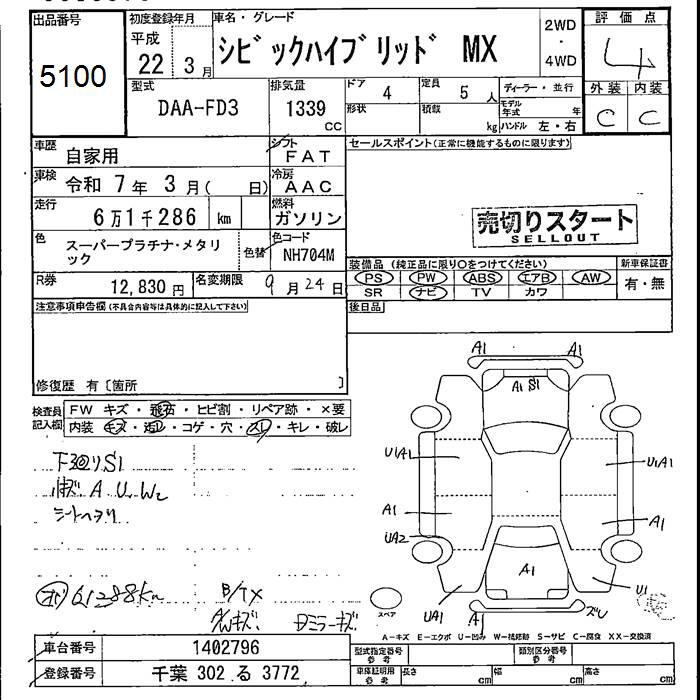 出品番号
5100
初度登録年月
平成
22 3月
車名・グレード
シビックハイブリッド MX
2WD
・
4WD
評価点
4
外装 内装
C C
型式
DAA-FD3
排気量
1339
CC
ドア 4
定員 5 人
形状
積数 kg
ディーラー・並行
モデル年式 年
ハンドル 左・右
車歴 自家用
シフト FAT
セールスポイント(正常に機能するものに限ります)
車検 令和 7年 3月( 日)
冷房 AAC
走行 6万1千286 km
燃料 ガソリン
売切りスタート
SELLOUT
色 スーパープラチナ・メタリック
色替
色コード NH704M
装備品(純正品に限り○をつけてください)
新車保証書
PS PW ABS エアB AW
SR ナビ TV カワ
有・無
R券 12,830 円
名変期限 9月24日
後日品
注意事項申告欄(不具合内容等は具体的に記入して下さい)
修復歴 有〔箇所 〕
検査員記入欄
FW キズ・飛石・ヒビ割・リペア跡・×要
内装 キズ・汚レ・コゲ・穴・スレ・キレ・破レ
下廻りS1
小キズ A U W2
シートヘタリ
61288km
B/TX
AWキズ
Dミラーキズ
A1 A1
A1 S1
U1A1 U1A1
A1 A1
UA2
A1
UA1 U1
A1 ズレ
スペア
A-キズ E-エクボ U-凹み W-補修跡 S-サビ C-腐食 XX-交換済
車台番号 1402796
登録番号 千葉 302 る 3772
型式指定番号 参考
類別区分番号 参考
車庫証明用 参考
長さ cm 幅 cm 高さ cm